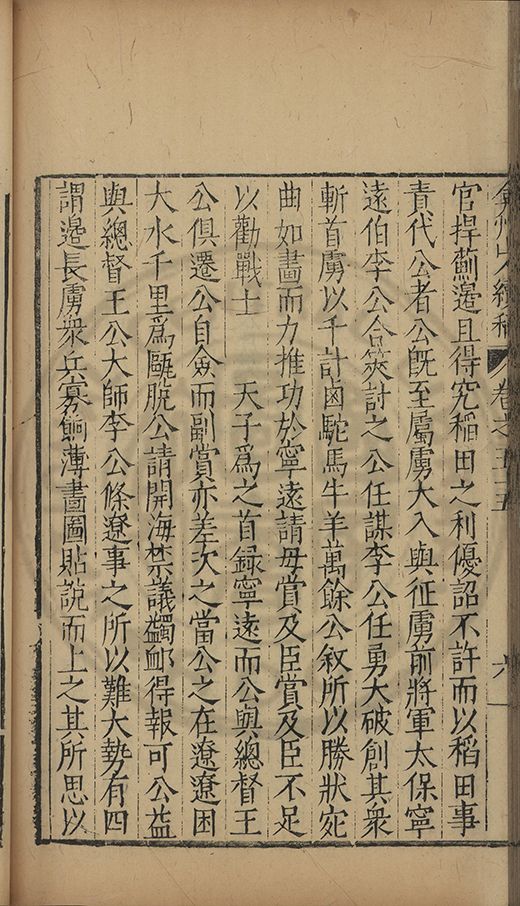 弇州山人續稿 卷之五十五 六
官捍薊邊且得究稻田之利優詔不許而以稻田事
責代公者公旣至屬虜大入與征虜前將軍太保寧
遠伯李公合筴討之公任謀李公任勇大破創其衆
斬首虜以千計鹵駝馬牛羊萬餘公敘所以勝狀宛
曲如畫而力推功於寧遠請毋賞及臣賞及臣不足
以勸戰士 天子爲之首録寧遠而公與總督王
公俱遷公自僉而副賞亦差次之當公之在遼遼困
大水千里爲甌脫公請開海禁議蠲郵得報可公益
與總督王公大師李公條遼事之所以難大勢有四
謂邊長虜衆兵寡餉薄畫圖貼說而上之其所思以